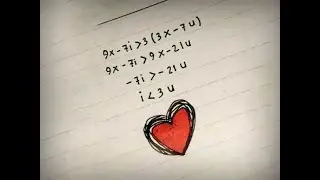 9x-7i>3(3x-7u)
9x-7i>9x-21u
-7i>-21u
i<3u